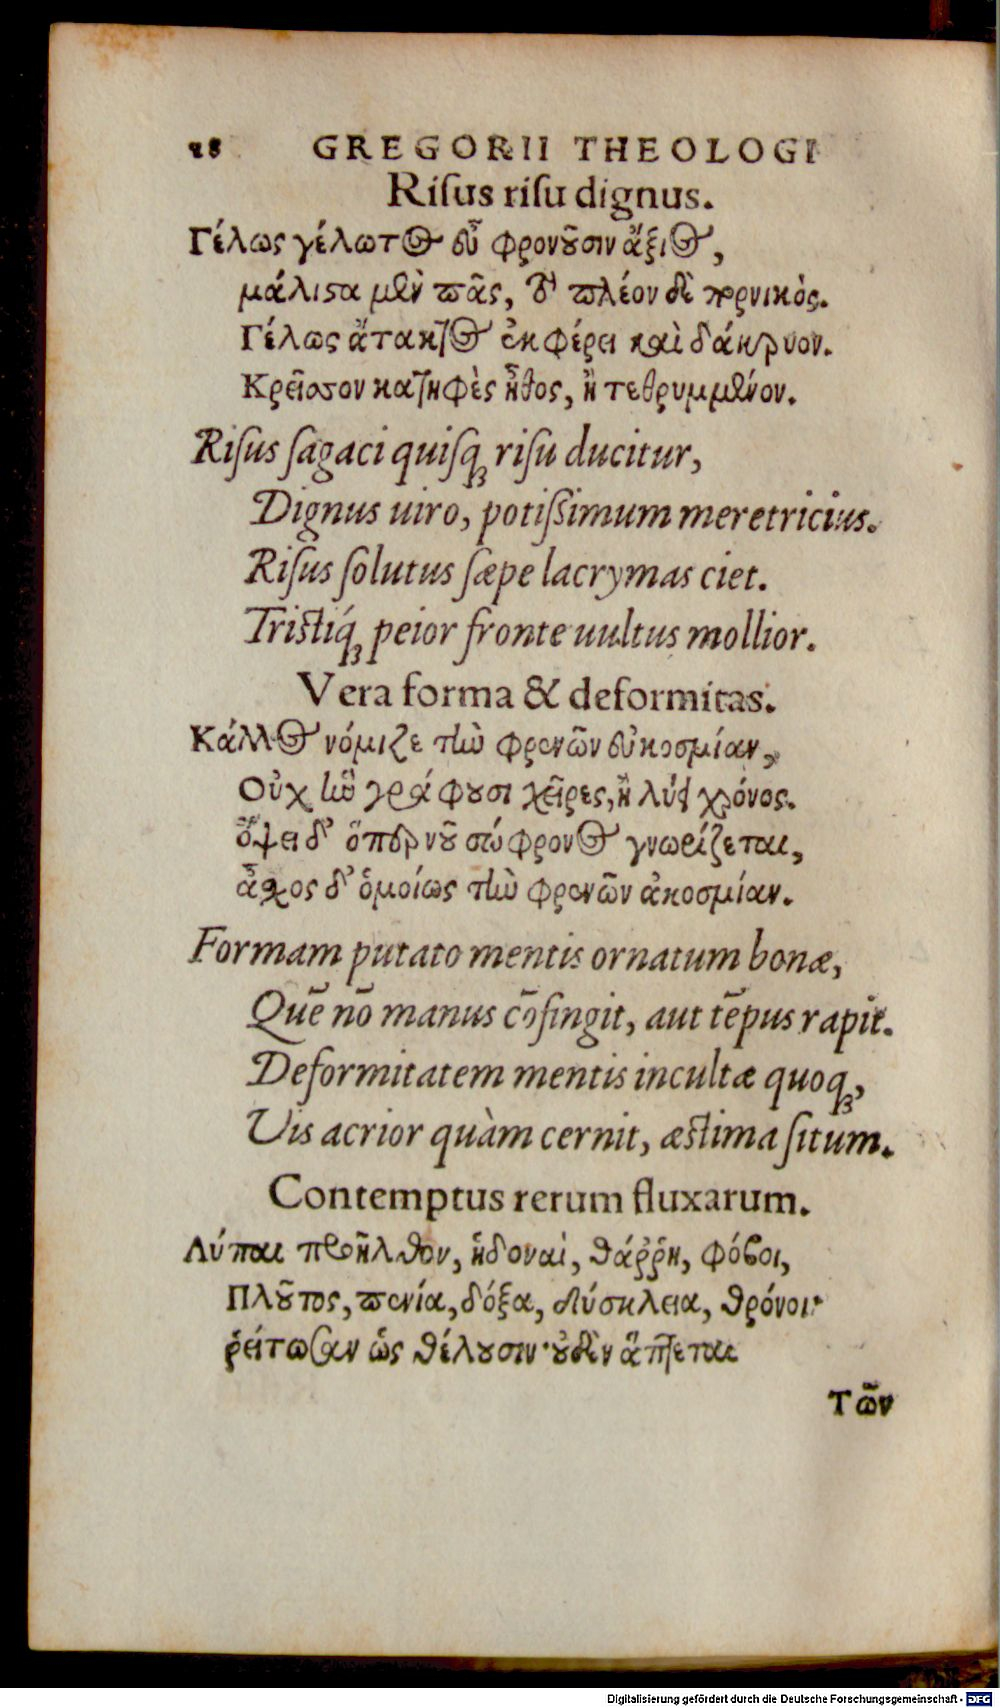 28 GREGORII THEOLOGI
Riſus riſu dignus.
Γέλως γέλωτος εὖ φρονοῦσιν ἄξιος,
μάλιϛα μὲν πᾶς, τὸ πλέον δὲ πορνικός.
Γέλως ἄτακτος ἐκφέρει καὶ δάκρυον.
Κρεῖσσον κατηφὲς ἦθος, ἢ τεθρυμμένον.
Riſus ſagaci quiſq; riſu ducitur,
Dignus uiro, potiſsimum meretricius.
Riſus ſolutus ſæpe lacrymas ciet.
Triſtiq́; peior fronte uultus mollior.
Vera forma & deformitas.
Κάλλος νόμιζε τὴν φρενῶν εὐκοσμίαν,
Οὐχ ἣν γράφουσι χεῖρες, ἢ λύει χρόνος.
ὄψει δ' ὅπερ νοῦ σώφρονος γνωρίζεται,
αἶσχος δ' ὁμοίως τὴν φρενῶν ἀκοσμίαν.
Formam putato mentis ornatum bonæ,
Quē nō manus cōfingit, aut tēpus rapit.
Deformitatem mentis incultæ quoq;,
Vis acrior quàm cernit, æſtima ſitum.
Contemptus rerum fluxarum.
Λύπαι παρῆλθον, ἡδοναὶ, θάῤῥη, φόβοι,
Πλοῦτος, πενία, δόξα, δύσκλεια, θρόνοι·
ῥείτωσαν ὡς θέλουσιν· οὐδὲν ἅπτεται
Τῶν
Digitalisierung gefördert durch die Deutsche Forschungsgemeinschaft - DFG